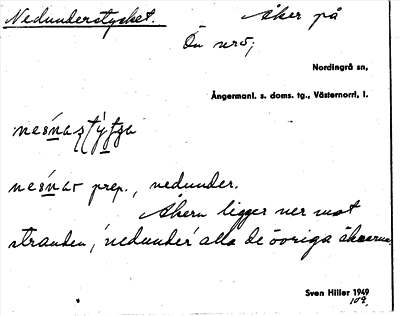 Nedunderstycket. Åker på
Ön nr 5;
Nordingrå sn,
Ångermanl. s. doms. tg., Västernorrl. l.
nesnast
nesnar prep., nedunder.
Åkern ligger ner mot
stranden, 'nedunder' alla de övriga åkrarna
Sven Hiller 1949